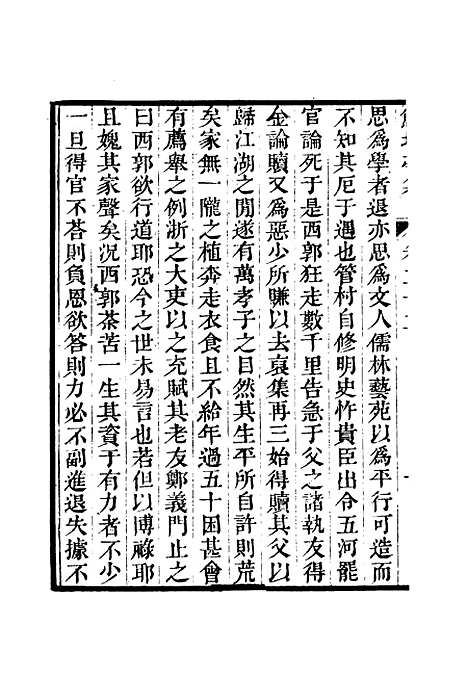 思爲學者退亦思爲文人儒林藝苑以爲平行可造而
不知其厄于遇也管村自修明史忤貴臣出令五河罷
官論死于是西郭狂走數千里告急于父之諸執友得
金論贖又爲惡少所賺以去裒集再三始得贖其父以
歸江湖之閒遂有萬孝子之目然其生平所自許則荒
矣家無一隴之植奔走衣食且不給年過五十困甚會
有薦舉之例浙之大吏以之充賦其老友鄭義門止之
曰西郭欲行道耶恐今之世未易言也若但以博祿耶
且媿其家聲矣況西郭茶苦一生其資于有力者不少
一旦得官不荅則負恩欲答則力必不副進退失據不